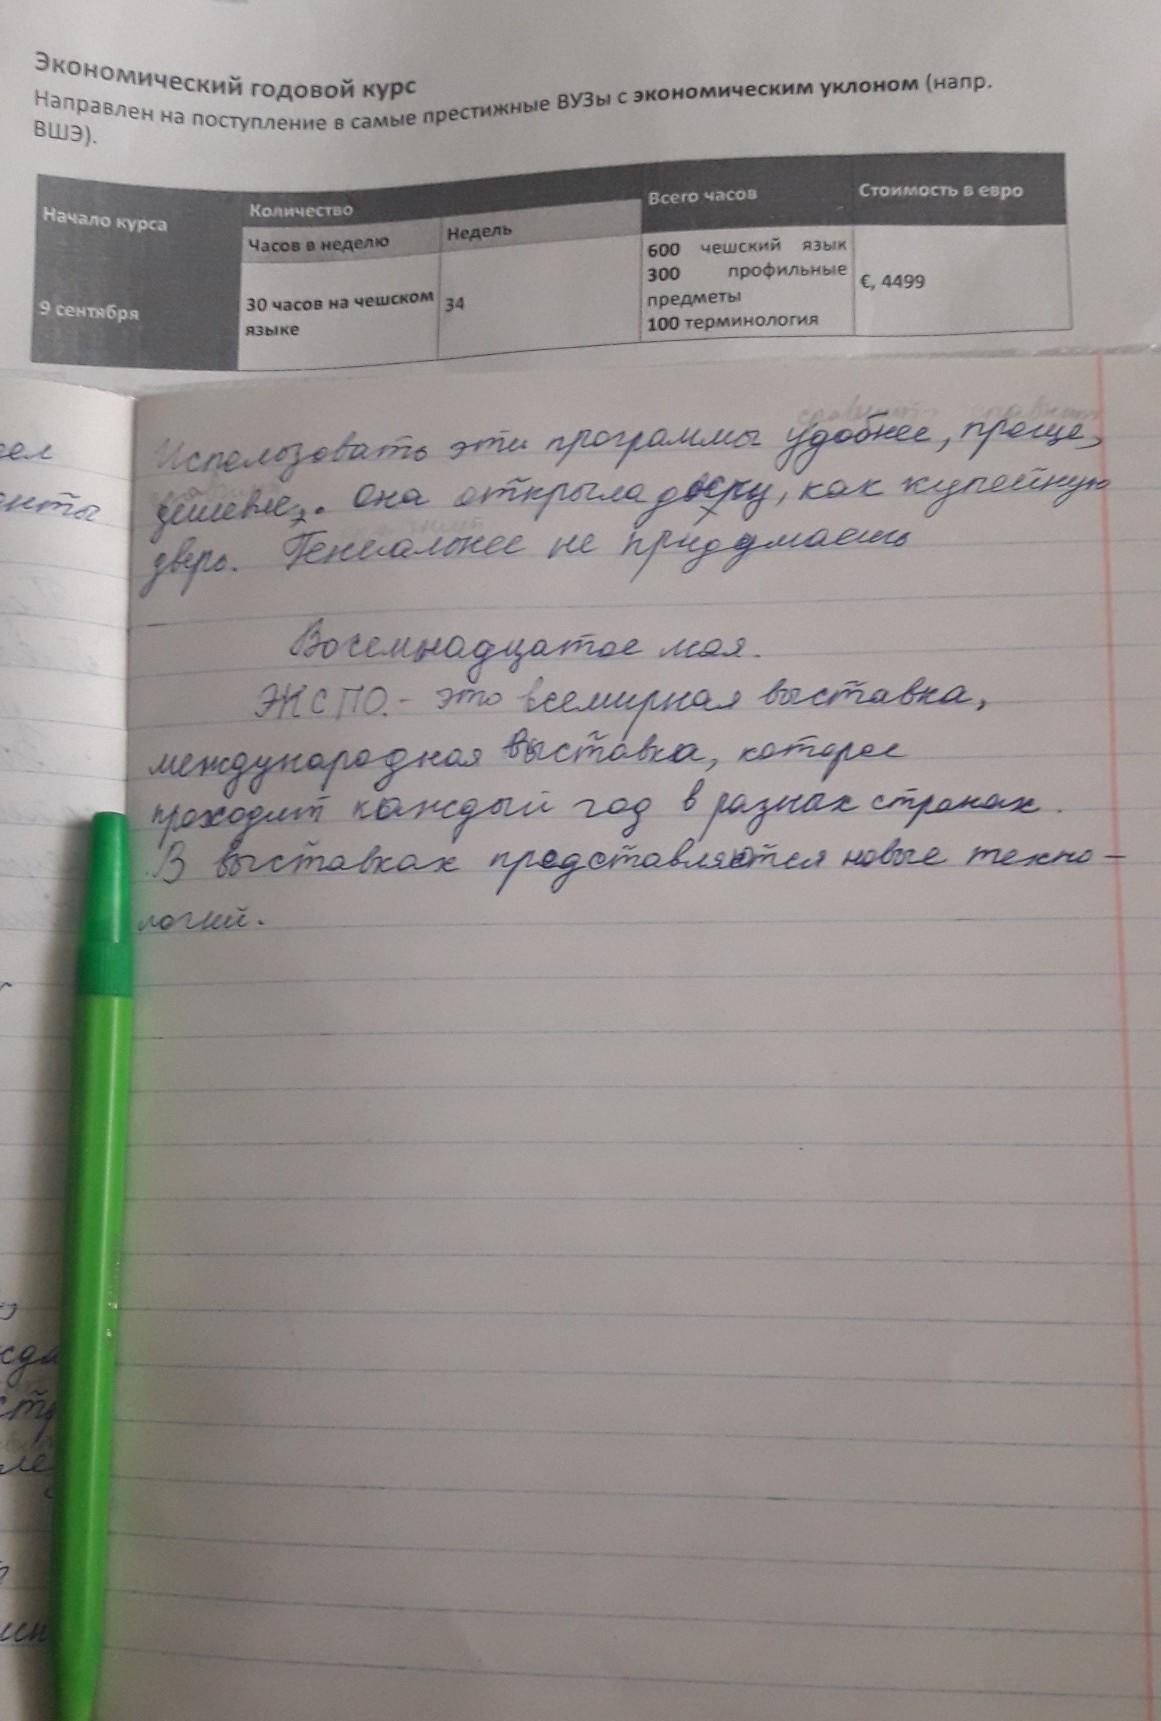 Экономический годовой курс
Направлен на поступление в самые престижные ВУЗы с экономическим уклоном (напр.
ВШЭ).
Начало курса
Количество
Всего часов
Стоимость в евро
Часов в неделю
Недель
9 сентября
30 часов на чешском
языке
34
600 чешский язык
300 профильные
предметы
100 терминология
€, 4499
Использовать эти программы удобнее, проще,
дешевле. Она открыла доску, как купейную
дверь. Гениальнее не придумаешь
Восемнадцатое мая.
ЭКСПО. - это всемирная выставка,
международная выставка, которое
проходит каждый год в разнах странах.
В выставках представляются новые техно-
логий.